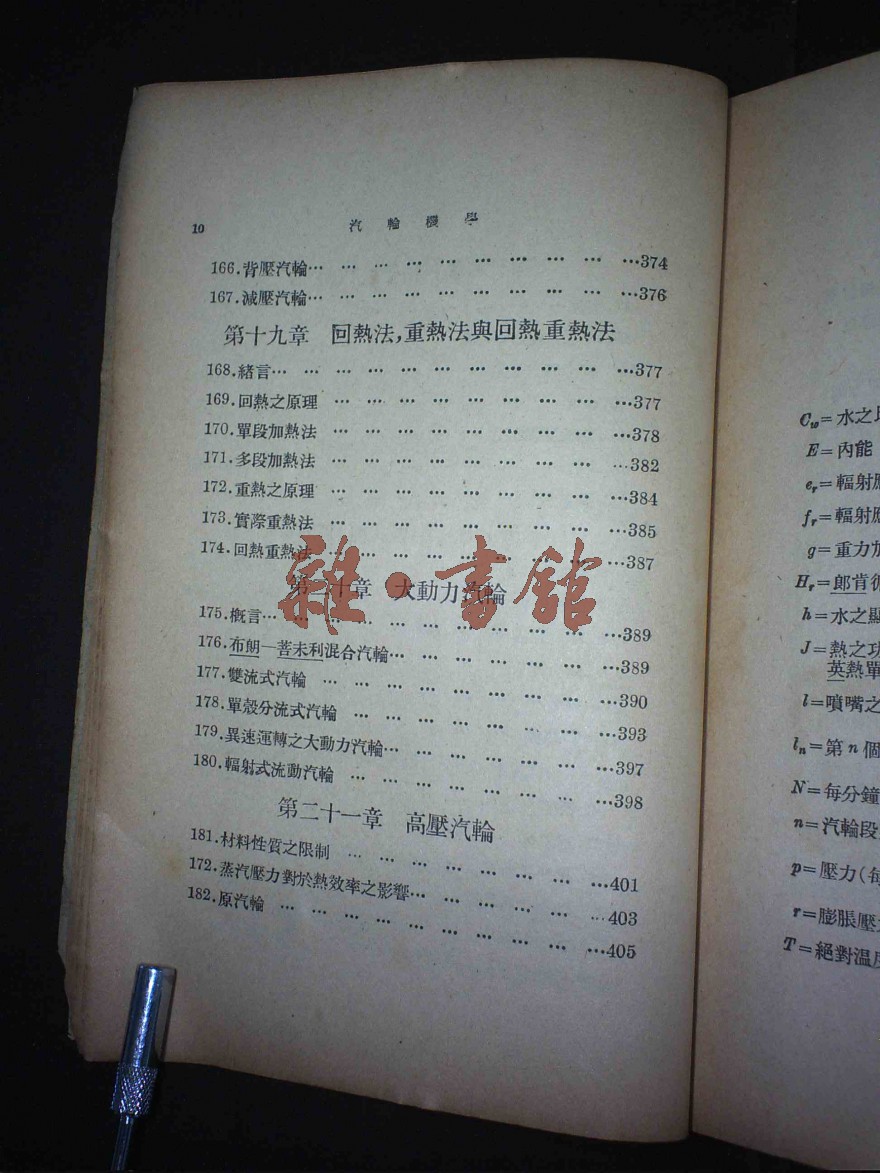 10 汽輪機學
166.背壓汽輪… … … … … … … … … … …374
167.減壓汽輪… … … … … … … … … … …376
第十九章 回熱法,重熱法與回熱重熱法
168.緒言… … … … … … … … … … … …377
169.回熱之原理 … … … … … … … … …377
170.單段加熱法 … … … … … … … … …378
171.多段加熱法 … … … … … … … … …382
172.重熱之原理 … … … … … … … … …384
173.實際重熱法 … … … … … … … … …385
174.回熱重熱法 … … … … … … … … …387
第二十章 大動力汽輪
175.概言… … … … … … … … … … … …389
176.布朗—菩未利混合汽輪… … … … … … …389
177.雙流式汽輪 … … … … … … … … …390
178.單殼分流式汽輪 … … … … … … … …393
179.異速運轉之大動力汽輪… … … … … … …397
180.輻射式流動汽輪 … … … … … … … …398
第二十一章 高壓汽輪
181.材料性質之限制 … … … … … … … …401
172.蒸汽壓力對於熱效率之影響… … … … … …403
182.原汽輪 … … … … … … … … … …405
雜·書館
C_w=水之
E=內能
e_r=輻射
f_r=輻射
g=重力加
H_r=郎肯
h=水之顯
J=熱之功
英熱單
l=噴嘴之
l_n=第n個
N=每分鐘
n=汽輪段
p=壓力(每
r=膨脹壓
T=絕對溫度